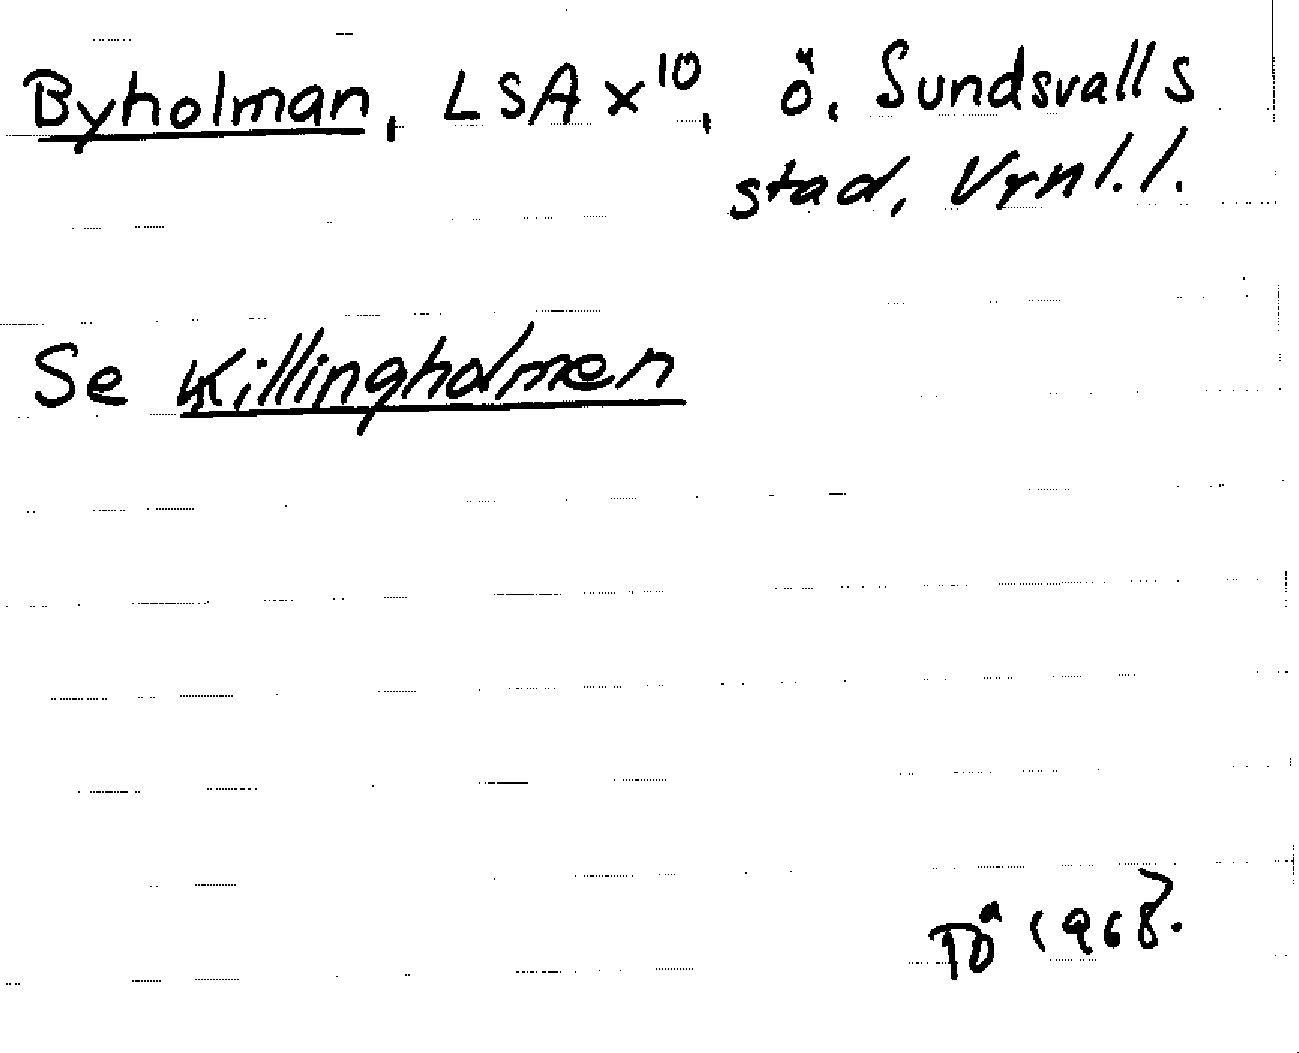 Byholman, LSA x¹⁰, ö. Sundsvalls
stad, Vrnl.l.
Se Killingholmen
1968.